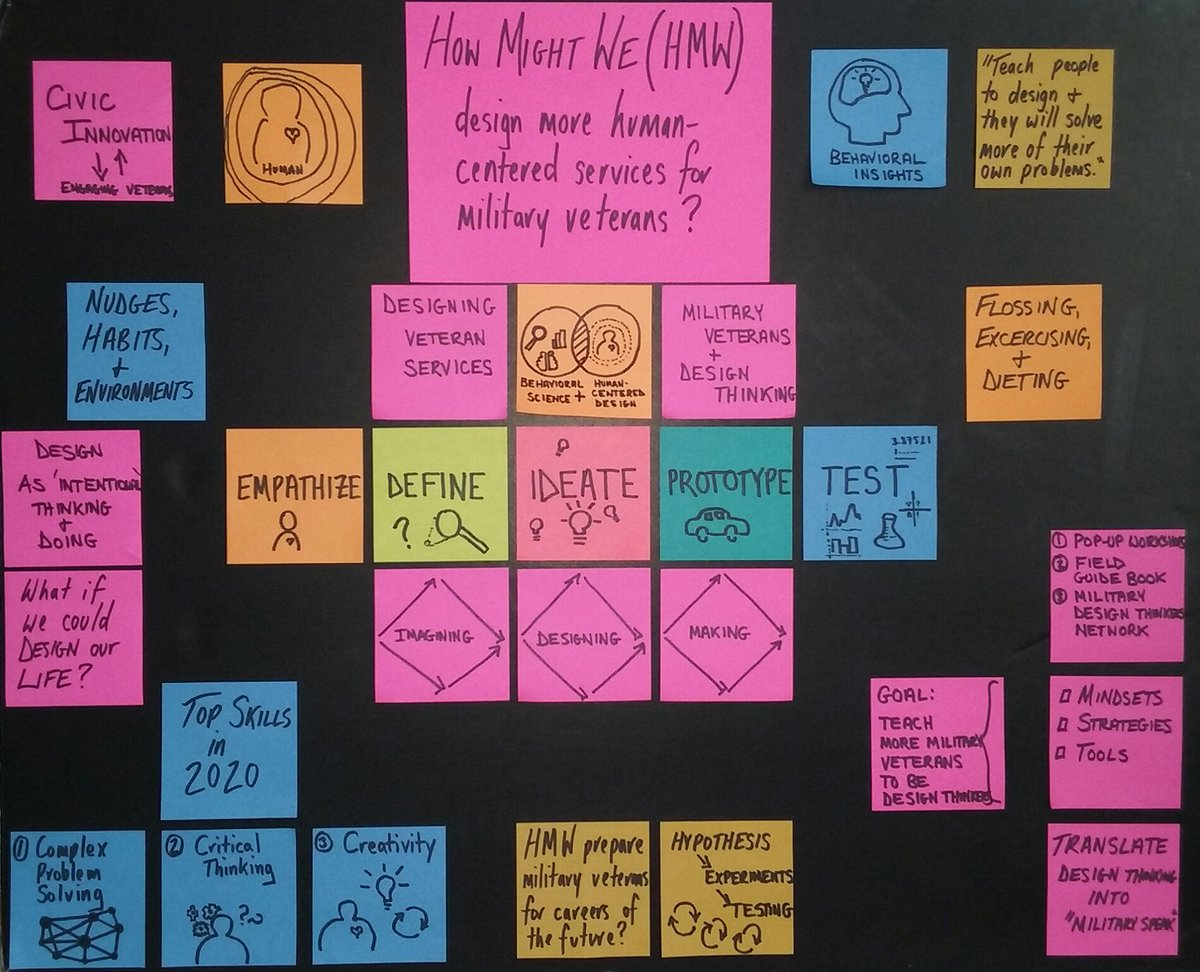 How Might We (HMW)
design more human-
centered services for
military veterans?
Civic
Innovation
Engaging Veterans
Human
Behavioral
Insights
"Teach people
to design +
they will solve
more of their
own problems."
Nudges,
Habits,
+
Environments
Designing
Veteran
Services
Behavioral
Science +
Human-
Centered
Design
Military
Veterans
+
Design
Thinking
Flossing,
Excercising,
+
Dieting
Design
As 'Intentional'
Thinking
+
Doing
Empathize
Define
?
Ideate
Prototype
Test
What if
we could
Design our
Life?
Imagining
Designing
Making
① Pop-up Workshop
② Field
Guide Book
③ Military
Design Thinkers
Network
Top Skills
in
2020
Goal:
Teach
More Military
Veterans
To Be
Design Thinkers
Mindsets
Strategies
Tools
① Complex
Problem
Solving
② Critical
Thinking
?
③ Creativity
HMW prepare
military veterans
for careers of
the future?
Hypothesis
Experiments
Testing
Translate
Design Thinking
Into
"Military Speak"